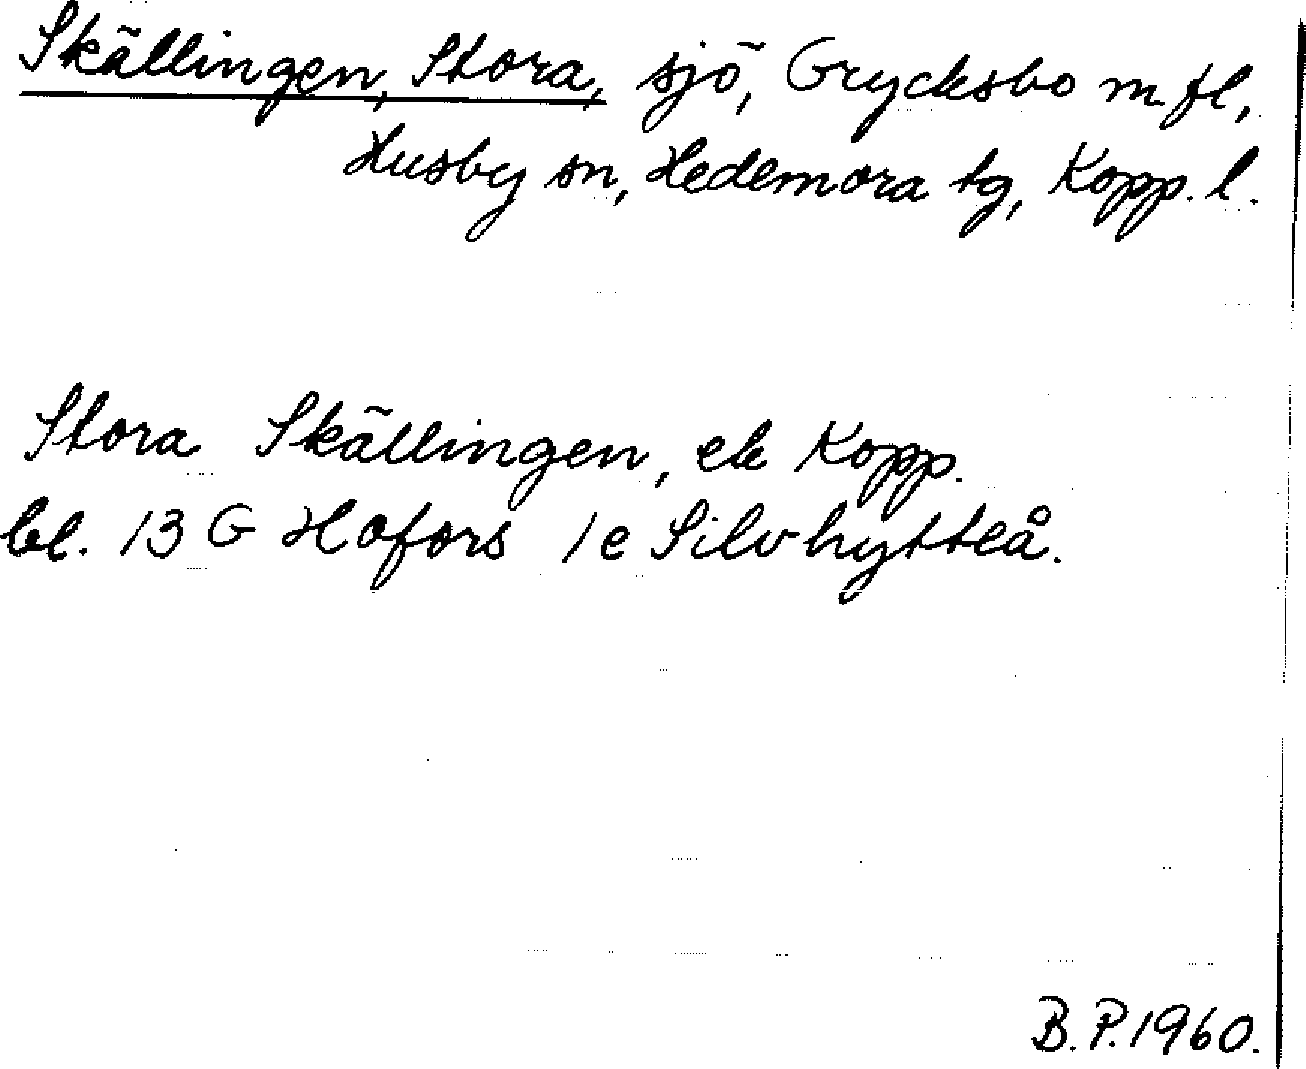 Skällingen, Stora, sjö, Grycksbo m.fl,
Husby sn, Hedemora tg, Kopp. l.
Stora Skällingen, ek Kopp.
bl. 13 G Hofors 1e Silvhytteå.
B.P. 1960.